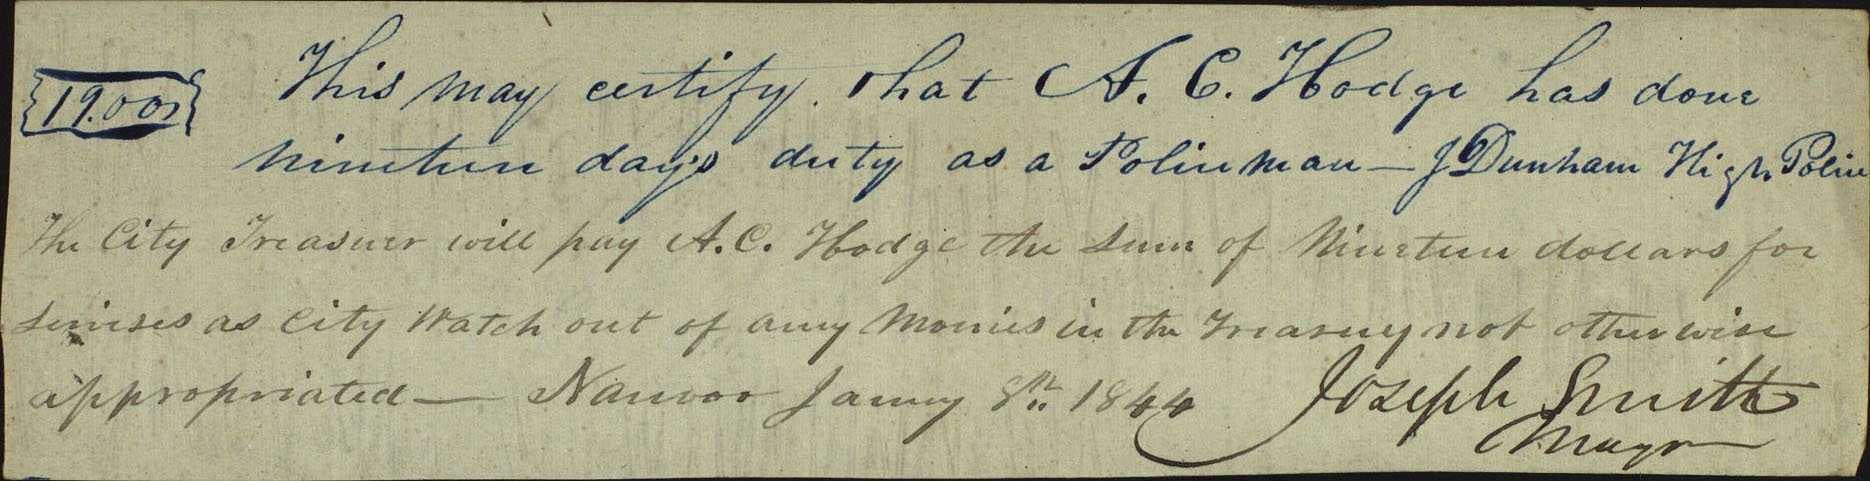 19.00
This may certify. that A. C. Hodge has done
nineteen day's duty as a Policeman — J Dunham High Police
The City Treasurer will pay A. C. Hodge the Sum of Nineteen dollars for
Servises as City Watch out of any Monies in the Treasury not otherwise
appropriated — Nauvoo Januy 8th. 1844 Joseph Smith
Mayor